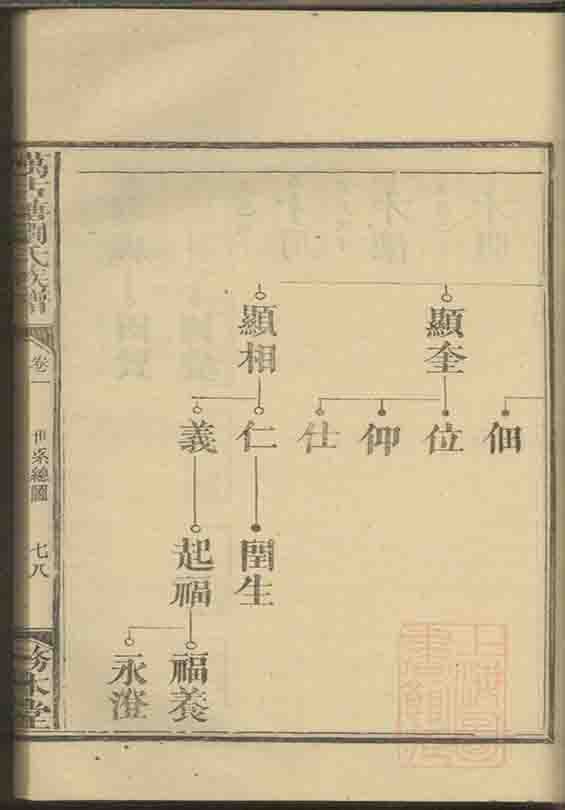 顯奎
顯相
佃
位
仰
仕
仁
義
閏生
起福
福養
永澄
氏族譜
卷一
世系總圖
七八
務本堂
上海圖
書館藏